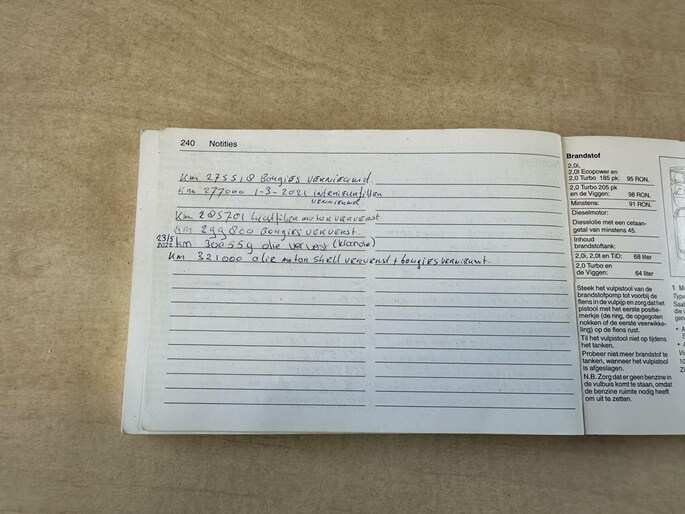 240 Notities
Km 275518 Bougies vernieuwd.
Km 277000 1-3-2021 interieurfilter
vernieuwd
Km 285701 Luchtfilter motor ververst
Km 299800 Bougies ververst.
23/5
2022 Km 300559 olie ververst (klaandie)
Km 321000 olie motor shell ververst + bougies vernieuwt.
Brandstof
2,0i,
2,0t Ecopower en
2,0 Turbo 185 pk: 95 RON.
2,0 Turbo 205 pk
en de Viggen: 98 RON.
Minstens: 91 RON.
Dieselmotor:
Dieselolie met een cetaan-
getal van minstens 45.
Inhoud
brandstoftank:
2,0i, 2,0t en TiD: 68 liter
2,0 Turbo en
de Viggen: 64 liter
Steek het vulpistool van de
brandstofpomp tot voorbij de
flens in de vulpijp en zorg dat het
pistool met het eerste positie-
merkje (de ring, de opgegoten
nokken of de eerste veerwikke-
ling) op de flens rust.
Til het vulpistool niet op tijdens
het tanken.
Probeer niet meer brandstof te
tanken, wanneer het vulpistool
is afgeslagen.
N.B. Zorg dat er geen benzine in
de vulbuis komt te staan, omdat
de benzine ruimte nodig heeft
om uit te zetten.